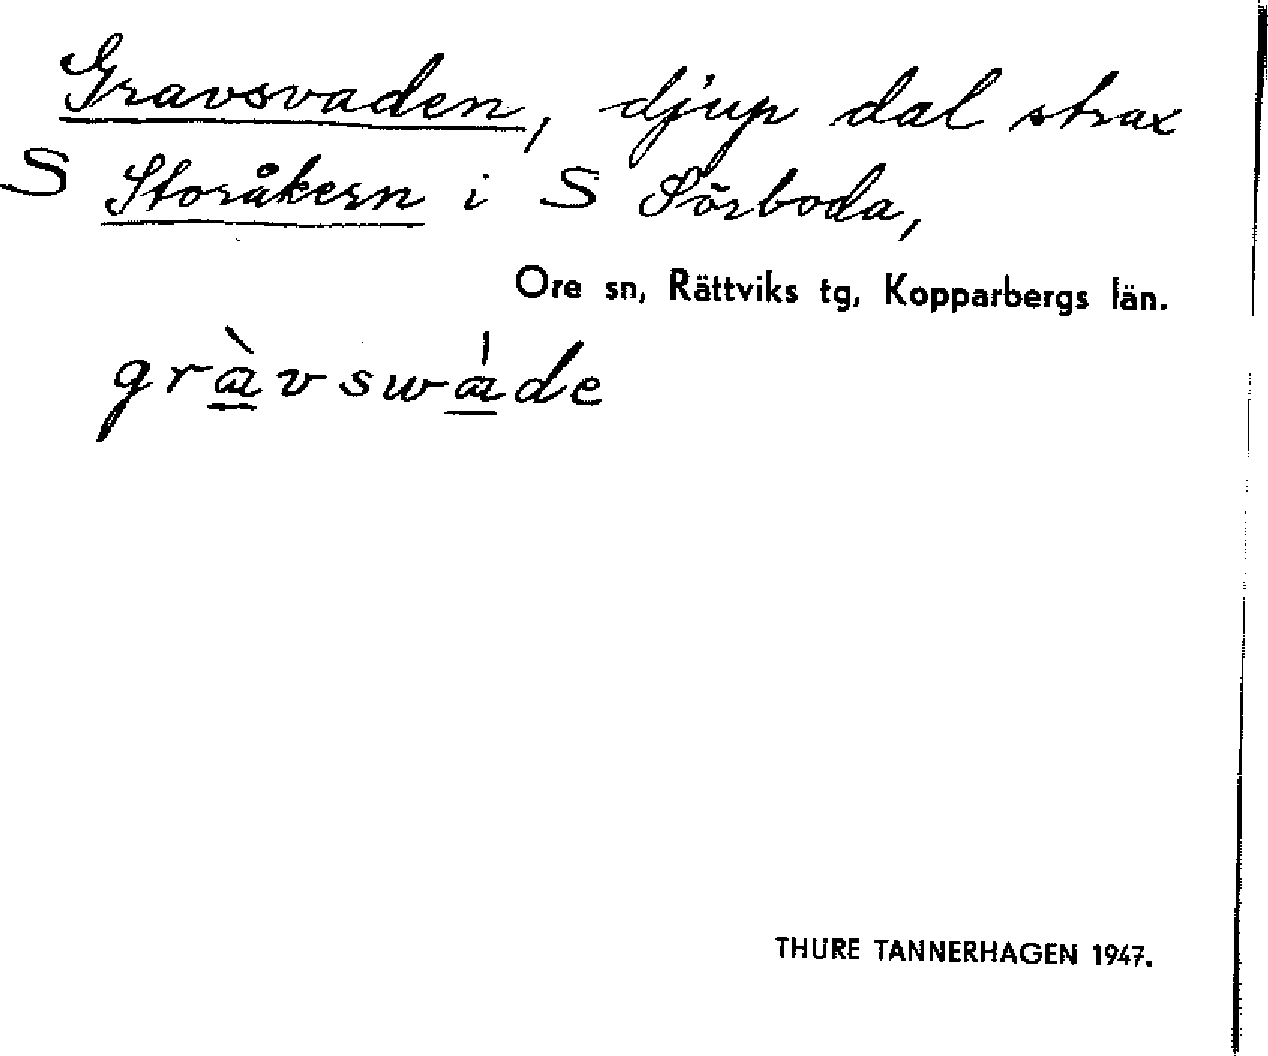 Gravsvaden, djup dal strax
S Storåkern i S Sörboda,
Ore sn, Rättviks tg, Kopparbergs län.
gràvswáde
THURE TANNERHAGEN 1947.